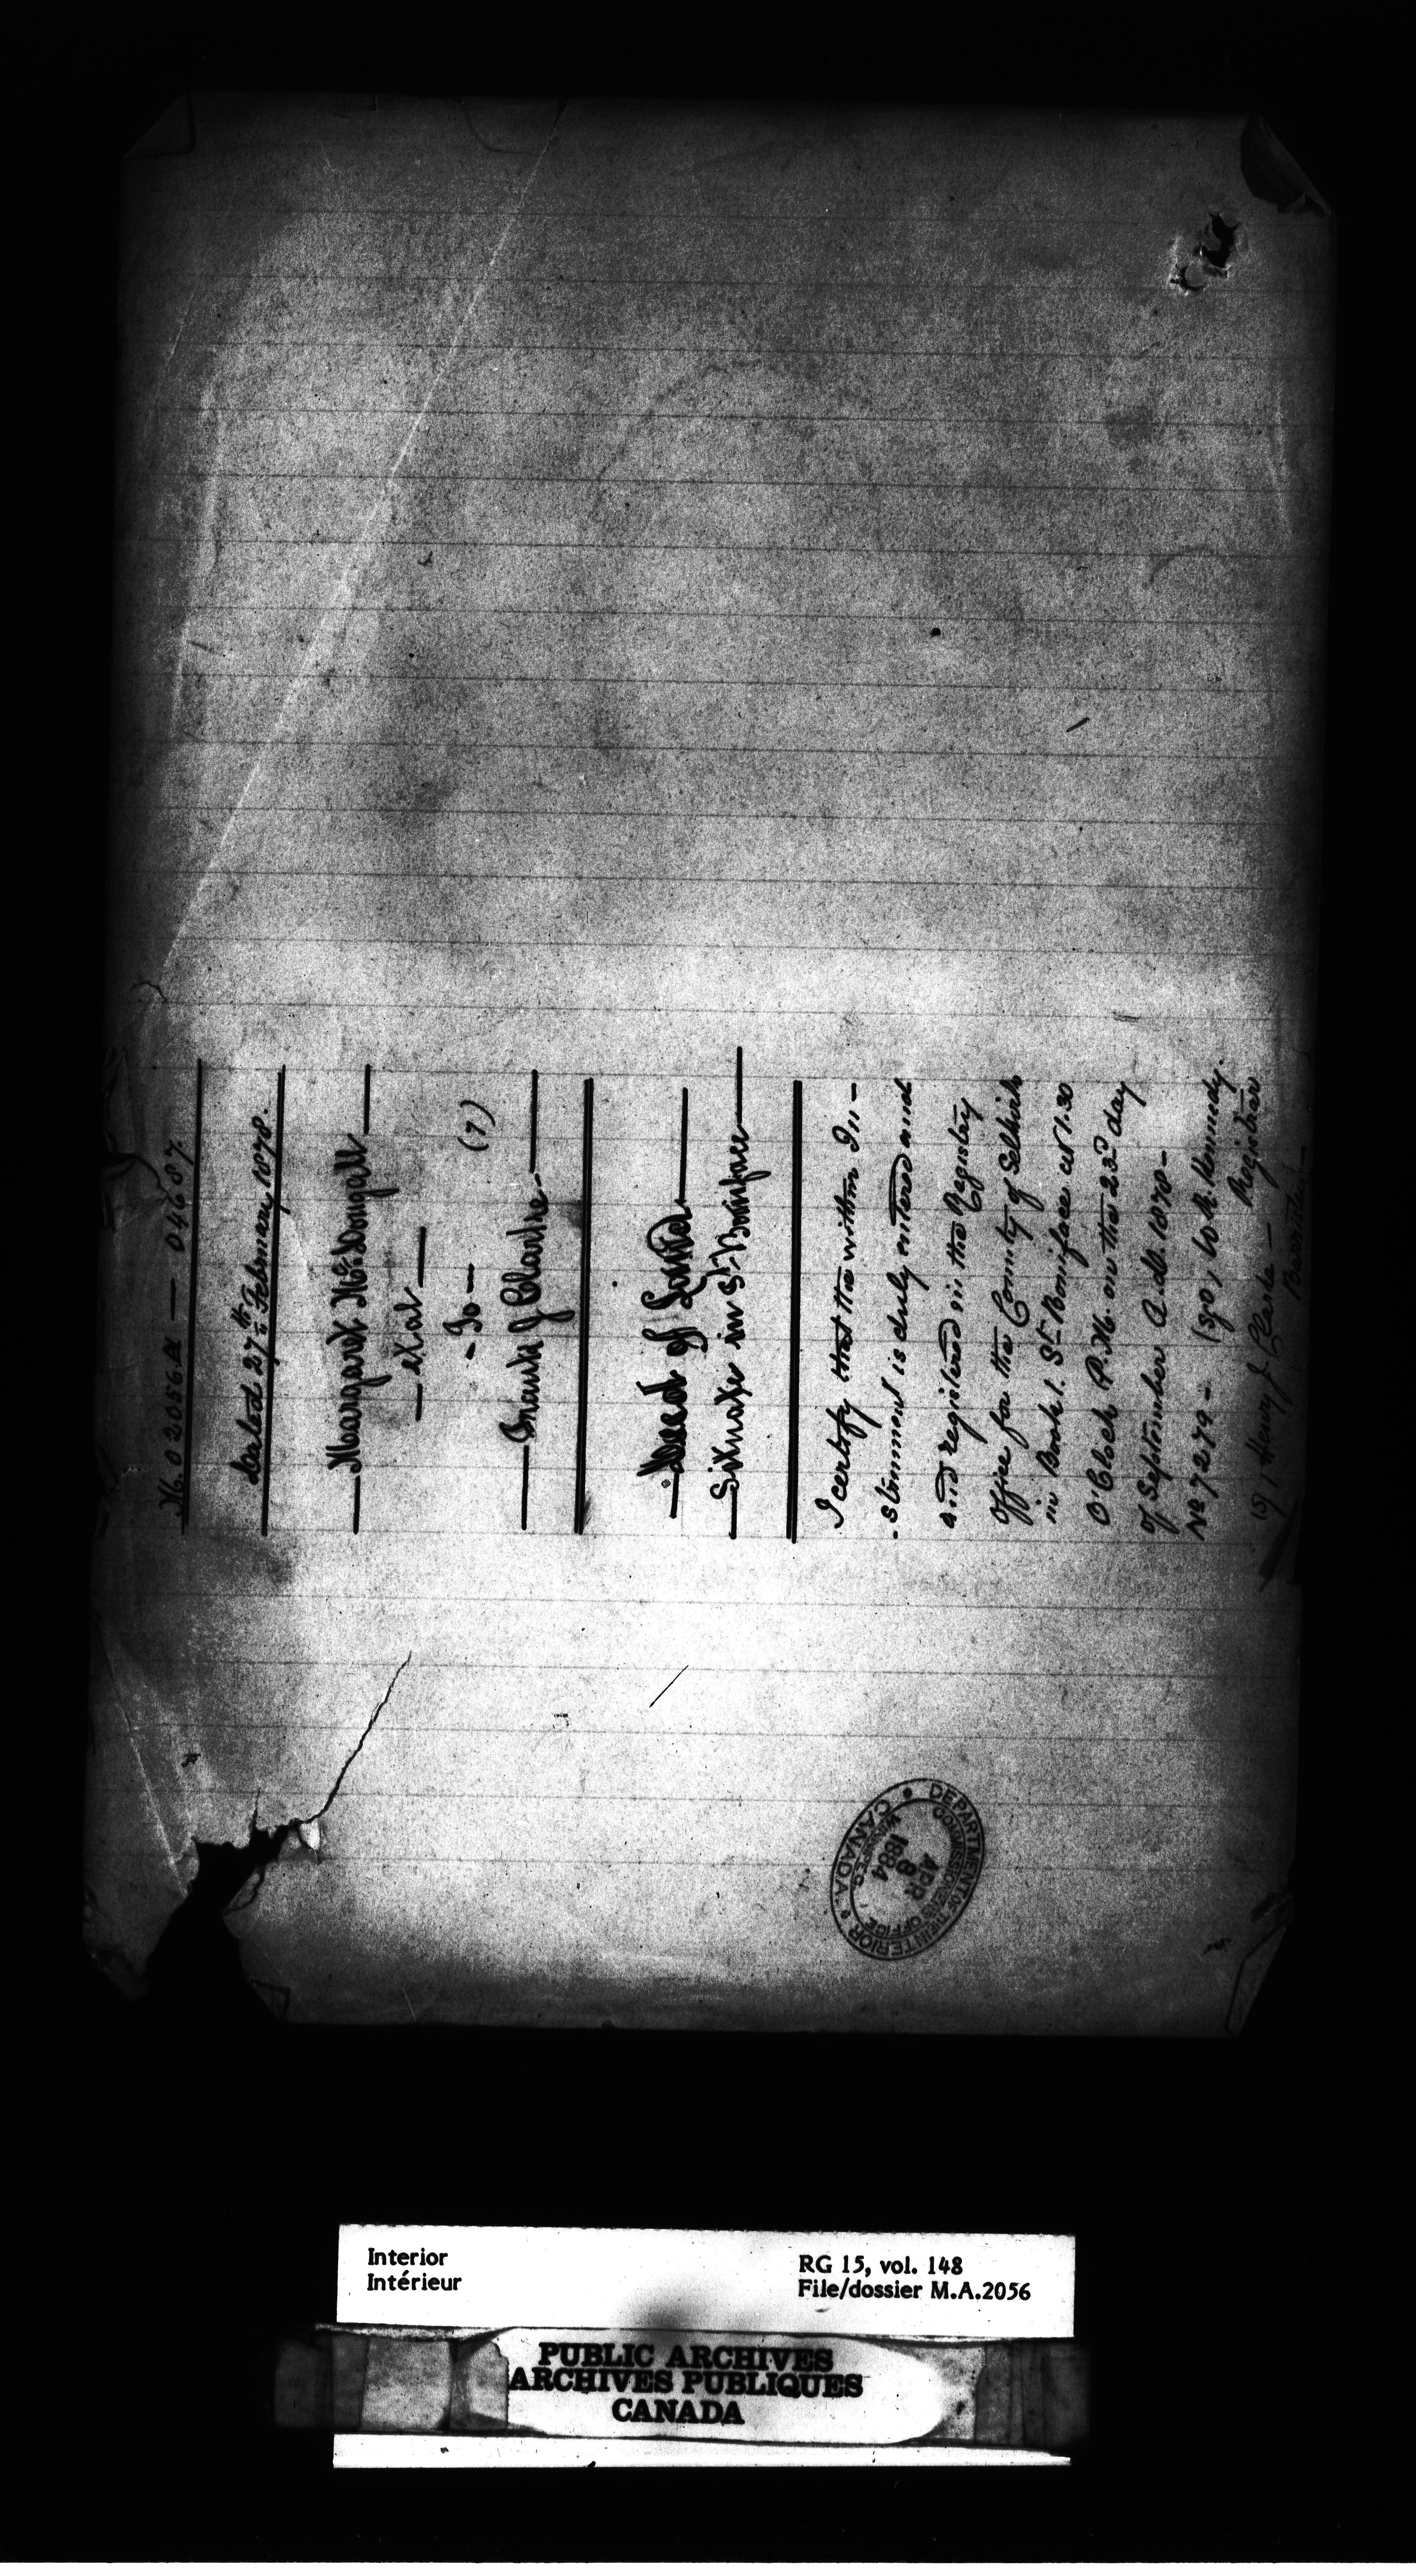 M.A. 02056 — 04687.
Dated 27th February 1878.
Margaret McDougall
et al
- To - (7)
Frank J Clarke -
Deed of Land
Situate in St. Boniface
I certify that the within In-
-strument is duly entered and
and registered in the Registry
Office for the County of Selkirk
in Book 1. St Boniface at 1.30
O'Clock P.M. on the 23rd day
of September A.D. 1878-
No 7279 - (sg) W.N. Kennedy.
Registrar
Henry J. Clarke -
Barrister -
DEPARTMENT OF THE INTERIOR
CANADA
COMMISSIONERS OFFICE
WINNIPEG
APR
8
1884
Interior
Intérieur
RG 15, vol. 148
File/dossier M.A.2056
PUBLIC ARCHIVES
ARCHIVES PUBLIQUES
CANADA